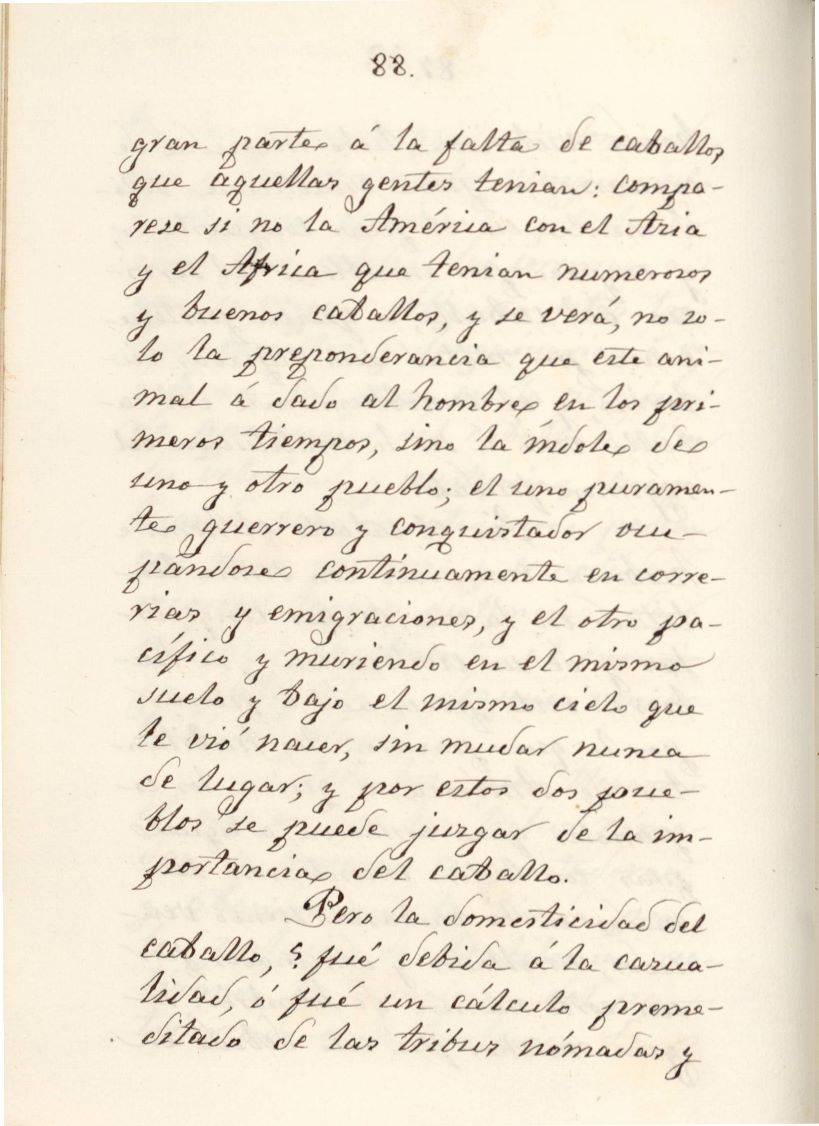 88.
gran parte á la falta de caballos
que aquellas gentes tenian: compa-
rese si no la América con el Asia
y el Africa que tenian numerosos
y buenos caballos, y se verá, no so-
lo la preponderancia que este ani-
mal á dado al hombre en los pri-
meros tiempos, sino la índole de
uno y otro pueblo; el uno puramen-
te guerrero y conquistador ocu-
pándose contínuamente en corre-
rias y emigraciones, y el otro pa-
cífico y muriendo en el mismo
suelo y bajo el mismo cielo que
le vió nacer, sin mudar nunca
de lugar; y por estos dos pue-
blos se puede juzgar de la im-
portancia del caballo.
Pero la domesticidad del
caballo, ¿ fué debida á la casua-
lidad, ó fué un cálculo preme-
ditado de las tribus nómadas y